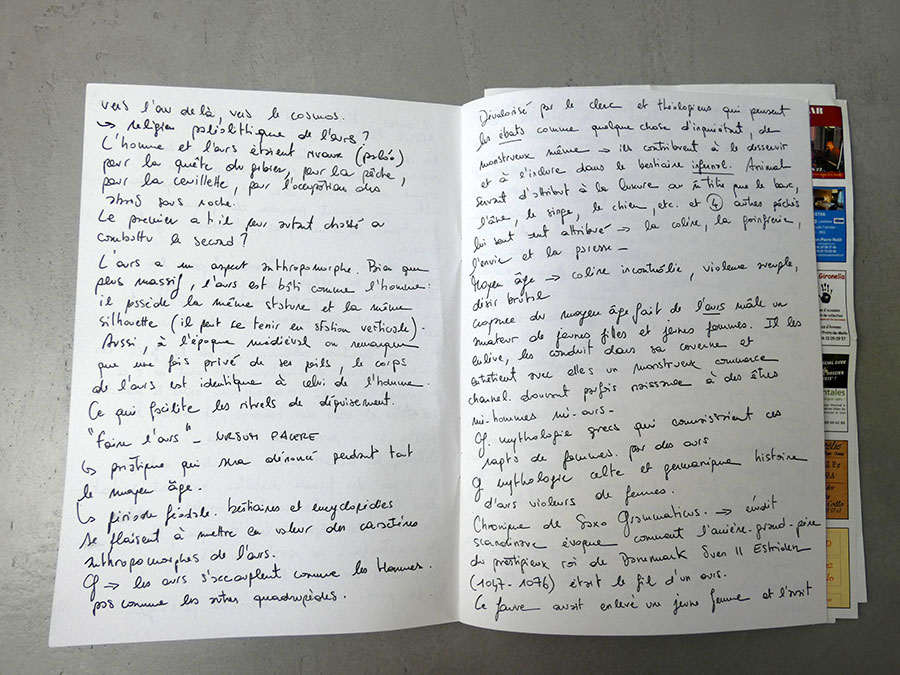 vers l'au delà, vers le cosmos.
↳ religion paléolithique de l'ours ?
L'homme et l'ours étaient rivaux (paléo)
pour la quête du gibier, par la pêche,
par la cueillette, par l'occupation des
abris sous roche.
Le premier a t il pour autant chassé a
combattu le second ?
L'ours a un aspect anthropomorphe. Bien que
plus massif, l'ours est bâti comme l'homme :
il possède la même stature et la même
silhouette (il peut se tenir en station verticale).
Aussi, à l'époque médiéval on remarque
que une fois privé de ses poils, le corps
de l'ours est identique à celui de l'homme.
Ce qui facilite les rituels de déguisement.
"Faire l'ours" _ URSUM FACERE
↳ pratique qui sera dénoncé pendant tout
le moyen âge.
↳ période féodale. bestiaires et encyclopédies
se plaisent à mettre en valeur des caractères
anthropomorphes de l'ours.
Cf → les ours s'accouplent comme les Hommes.
pas comme les autres quadrupèdes.
Dévalorisé par le clerc et théologiens qui pensent
les ébats comme quelque chose d'inquiétant, de
monstrueux même → ils contribuent à le desservir
et à l'inclure dans le bestiaire infernal. Animal
servant d'attribut à la luxure au m titre que le bouc,
l'âne, le singe, le chien, etc. et 4 autres péchés
lui sont attribué → la colère, la goinfrerie,
l'envie et la paresse _
Moyen âge → colère incontrôlée, violence aveugle,
désir brutal
du moyen âge fait de l'ours mâle un
amateur de jeunes filles et jeunes femmes. Il les
enlève, les conduit dans sa caverne et
entretient avec elles un monstrueux commerce
charnel. donnant parfois naissance à des êtres
mi-hommes mi-ours _
Cf mythologie grecs qui connaissaient ces
rapts de femmes. par des ours
Cf mythologie celte et germanique histoire
d'ours violeurs de femmes.
Chronique de Saxo Grammaticus. →
Scandinave évoque comment l'arrière-grand-père
du prestigieux roi de Danemark Sven II Estridsen
(1047-1076) était le fil d'un ours.
Ce fauve avait enlevé une jeune femme et l'avait
BAR
Gironella